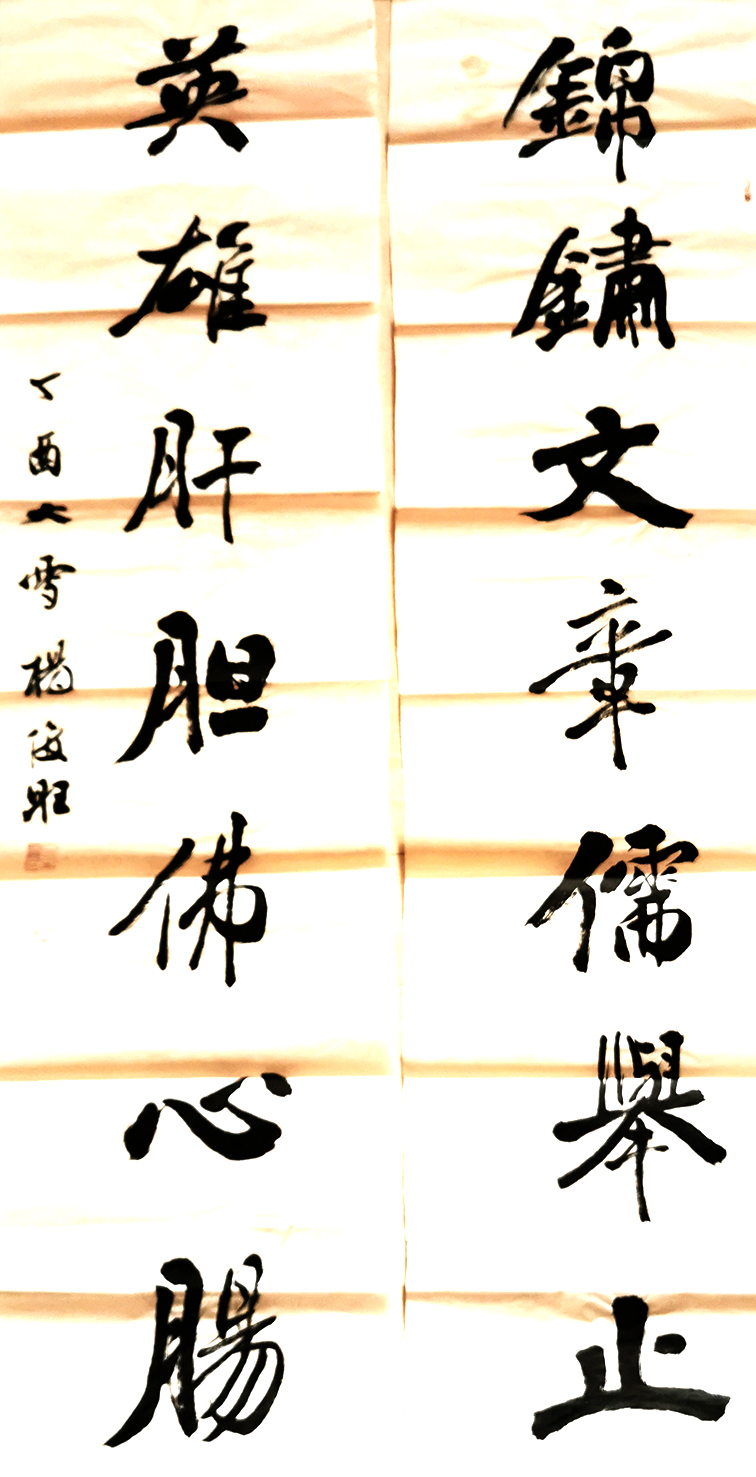 錦鏽文章儒舉止
英雄肝胆佛心腸
丁酉大雪楊俊旺